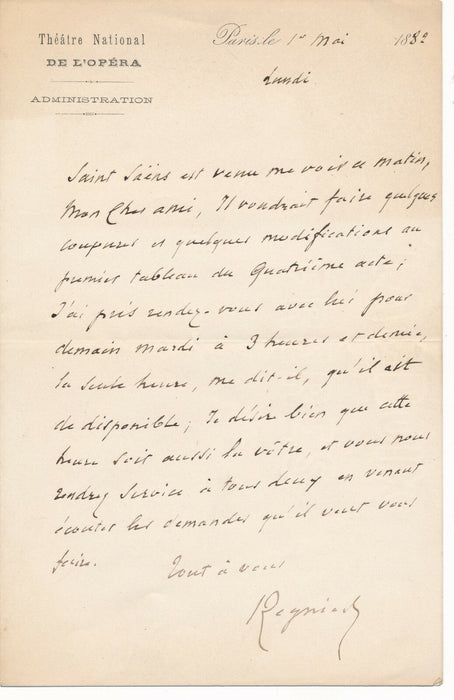 Théâtre National
DE L'OPÉRA
ADMINISTRATION
Paris, le 1er Mai 188
Lundi
Saint Saëns est venu me voir ce matin,
Mon Cher ami, Il voudrait faire quelques
coupures et quelques modifications au
premier tableau du Quatrième acte;
J'ai pris rendez-vous avec lui pour
demain mardi à 3 heures et demie,
la seule heure, me dit-il, qu'il ait
de disponible; Je désire bien que cette
heure soit aussi la vôtre, et vous nous
rendrez service à tous deux en venant
écouter les demandes qu'il veut vous
faire.
Tout à vous
Regnier